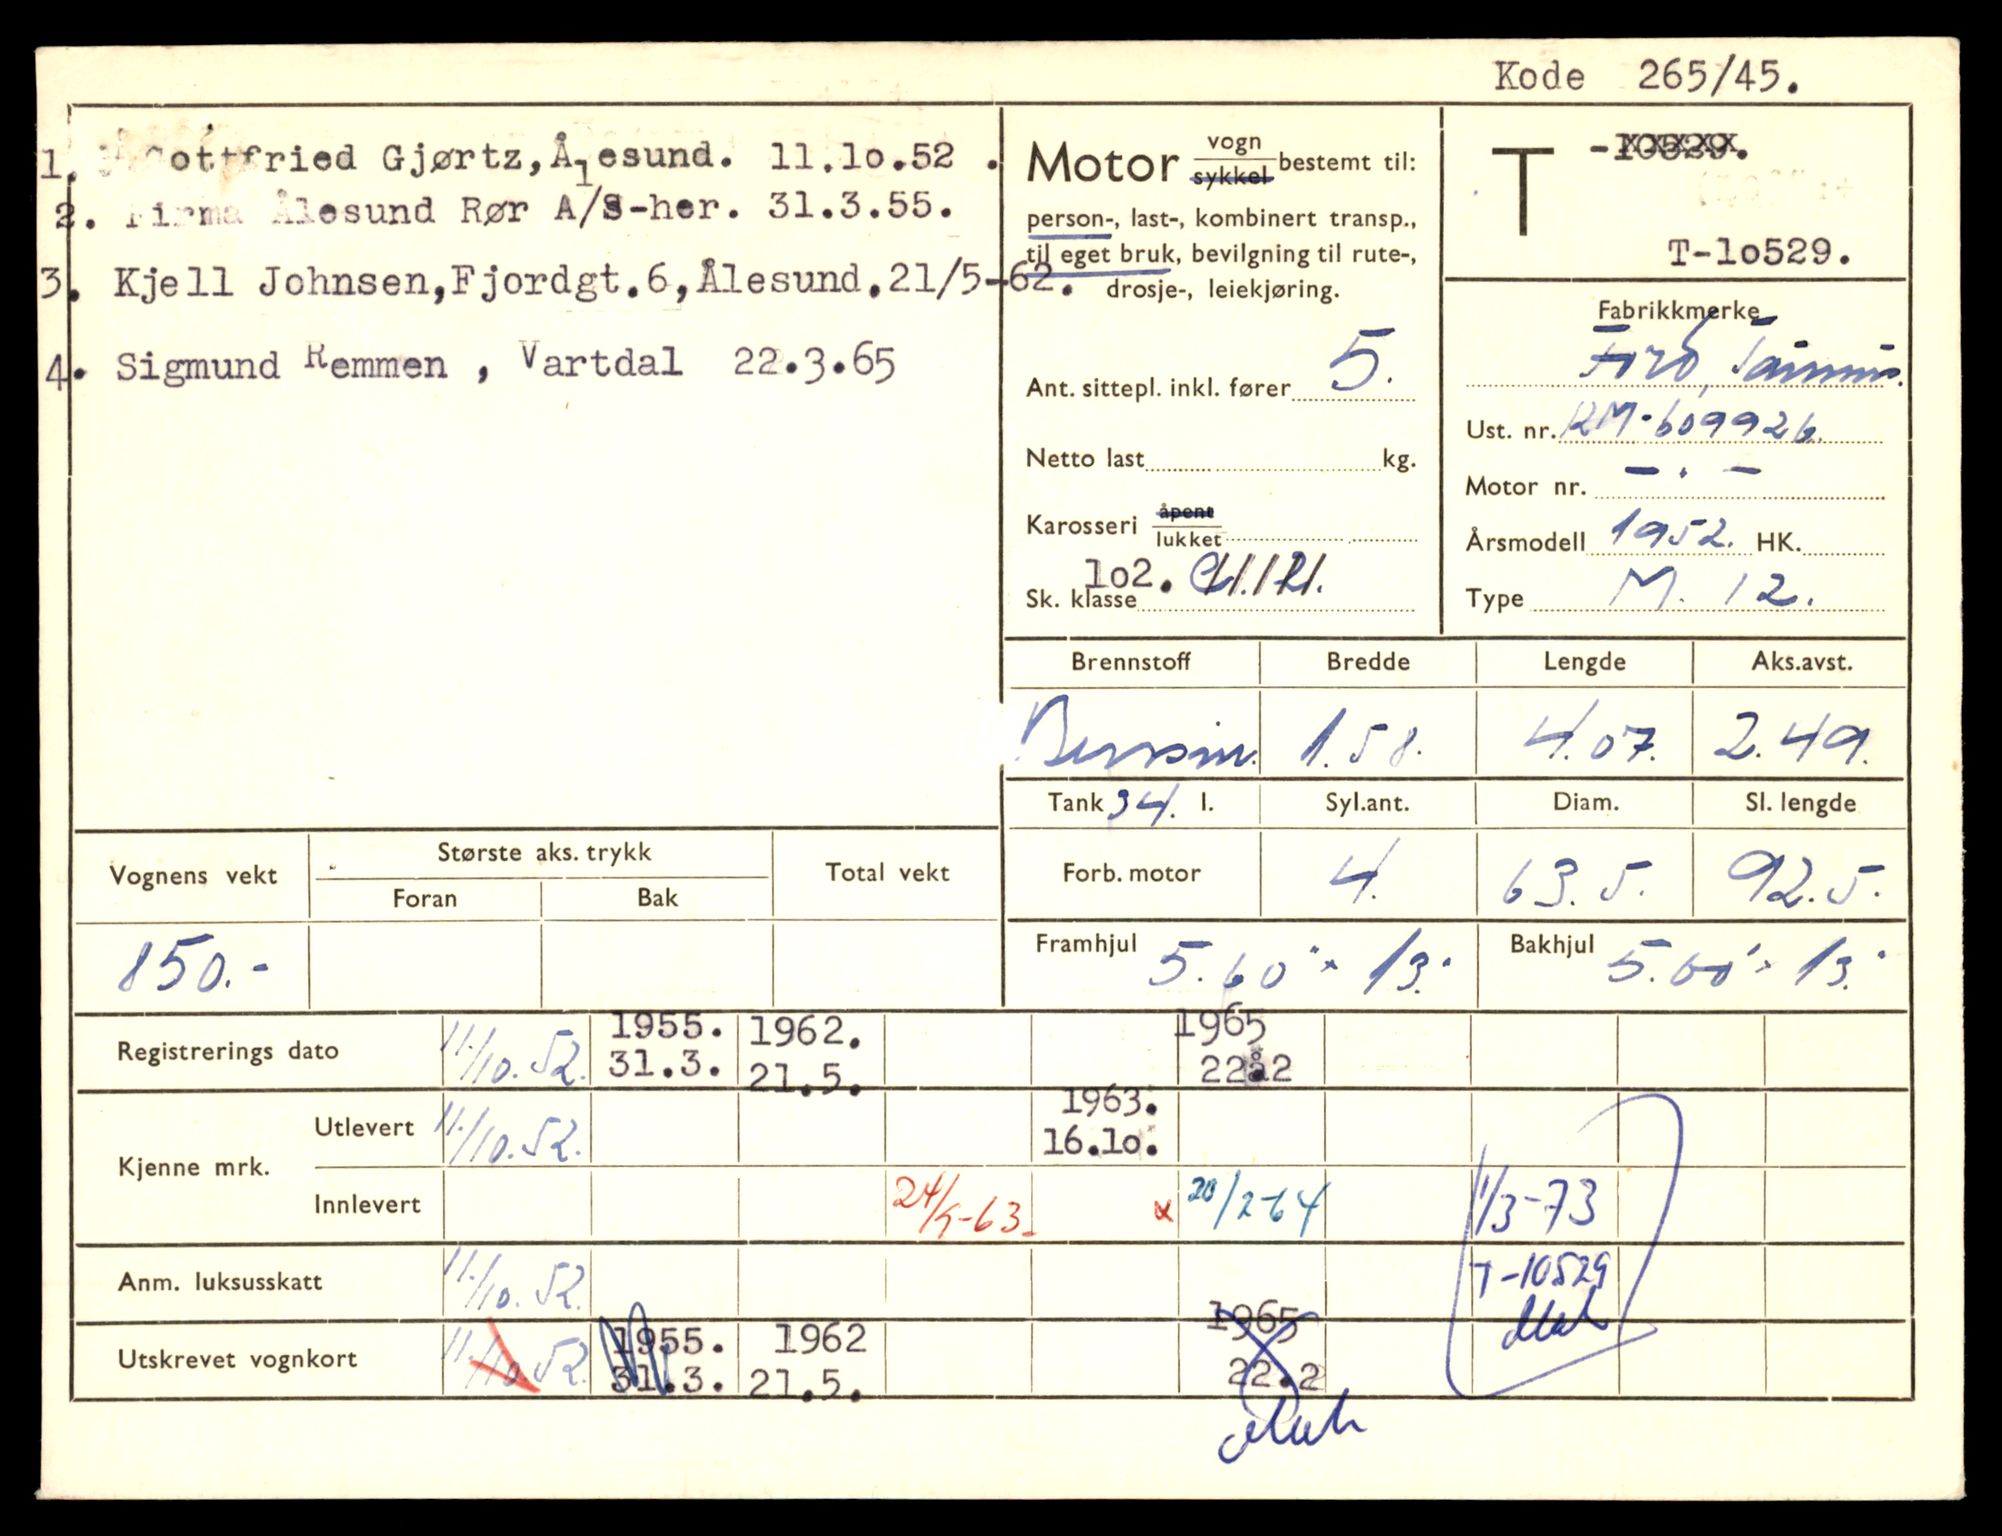 Kode 265/45.
1. Gottfried Gjørtz, Ålesund. 11.1o.52 .
2. Firma Ålesund Rør A/S-her. 31.3.55.
3. Kjell Johnsen,Fjordgt.6,Ålesund.21/5-62.
4. Sigmund Remmen , Vartdal 22.3.65
Motor vogn sykkel bestemt til:
person-, last-, kombinert transp.,
til eget bruk, bevilgning til rute-,
drosje-, leiekjøring.
Ant. sittepl. inkl. fører 5.
Netto last kg.
Karosseri åpent lukket
Sk. klasse 1o2.
T -10529.
T-1o529.
Fabrikkmerke
Ford, Taunus.
Ust. nr. RM-609926
Motor nr. - . -
Årsmodell 1952. HK.
Type M. 12.
Brennstoff Bredde Lengde Aks.avst.
Bensin. 1.58. 4.07. 2.49.
Tank 34. l. Syl.ant. Diam. Sl. lengde
Forb. motor 4. 63.5. 92.5.
Framhjul 5.60" x 13." Bakhjul 5.60" x 13."
Vognens vekt Største aks. trykk Total vekt
Foran Bak
850.-
Registrerings dato 11/10.52. 1955. 31.3. 1962. 21.5. 1965 22.2
Kjenne mrk. Utlevert 11/10.52. 1963. 16.1o.
Innlevert 24/5-63. x 20/2-64 1/3-73
Anm. luksusskatt 11/10.52. T-10529
Utskrevet vognkort 11/10.52. 1955. 31.3. 1962 21.5. 1965 22.2